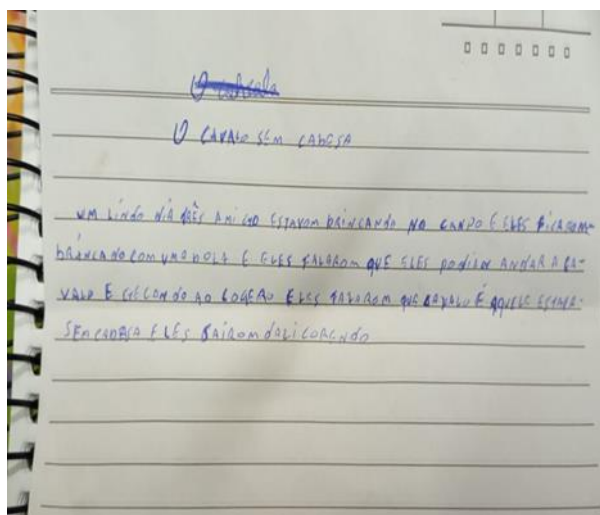 O CAVALO SEM CABESA
UM LINDO DIA TRÊS AMIGO ESTAVOM BRINCANDO NO CANPO E ELES FICAROM
BRINCANDO COM UMA BOLA E ELES FALAROM QUE ELES PODIAM ANDAR A CA-
VALO E CHECANDO AO LOGERO ELES FALAROM QUE CAVALO É AQUELE ESTAVA
SEM CABESA ELES SAIROM DALI CORENDO